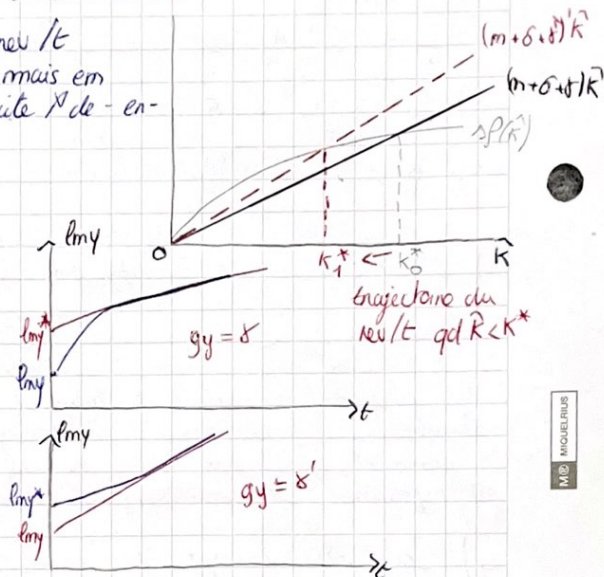 rev/t
mais em
ite ↗ de-en-
(m+δ+γ)'k̂
(m+δ+γ)k̂
sf(k̂)
O
K₁* ← K₀*
k̂
trajectoire du
rev/t qd k̂<K*
lmy
lmy*
lmy
gy = γ
t
lmy
lmy*
lmy
gy = γ'
t
MR MIQUELRIUS